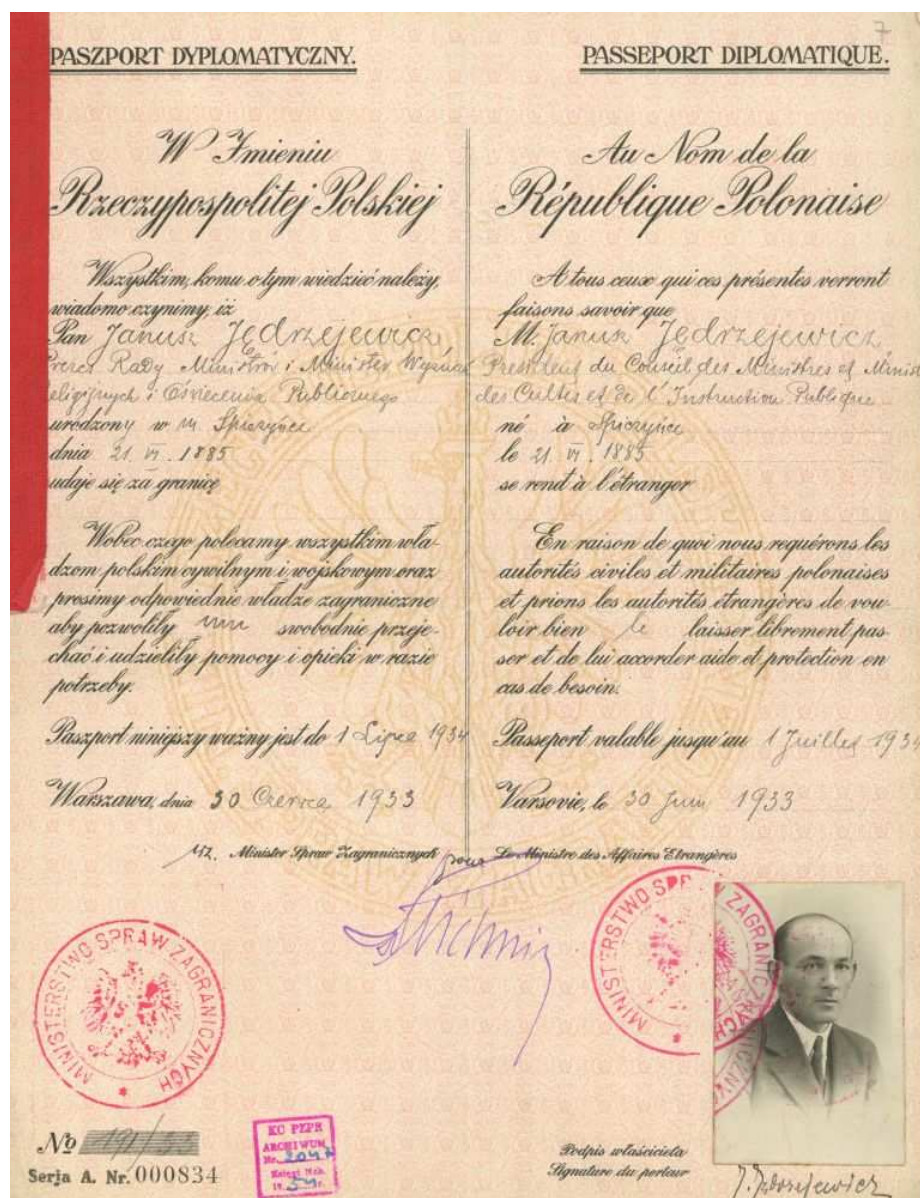 7
PASZPORT DYPLOMATYCZNY.
W Imieniu
Rzeczypospolitej Polskiej
Wszystkim, komu o tym wiedzieć należy,
wiadomo czynimy, iż
Pan Janusz Jędrzejewicz
Prezes Rady Ministrów i Minister Wyznań
Religijnych i Oświecenia Publicznego
urodzony w m. Spiczyńce
dnia 21. VI. 1885
udaje się za granicę
Wobec czego polecamy wszystkim wła-
dzom polskim cywilnym i wojskowym oraz
prosimy odpowiednie władze zagraniczne
aby pozwoliły mu swobodnie przeje-
chać i udzieliły pomocy i opieki w razie
potrzeby.
Paszport niniejszy ważny jest do 1 Lipca 1934
Warszawa, dnia 30 Czerwca 1933
Minister Spraw Zagranicznych
PASSEPORT DIPLOMATIQUE.
Au Nom de la
République Polonaise
A tous ceux qui ces présentes verront
faisons savoir que
M. Janusz Jędrzejewicz
President du Conseil des Ministres et Minist
des Cultes et de l'Instruction Publique
né à Spiczyńce
le 21. VI. 1885
se rend à l'étranger
En raison de quoi nous requérons les
autorités civiles et militaires polonaises
et prions les autorités étrangères de vou-
loir bien le laisser librement pas-
ser et de lui accorder aide et protection en
cas de besoin.
Passeport valable jusqu'au 1 Juillet 1934
Varsovie, le 30 Juin 1933
pour Le Ministre des Affaires Etrangères
MINISTERSTWO SPRAW ZAGRANICZNYCH
MINISTERSTWO SPRAW ZAGRANICZNYCH
No 191/33
Serja A. Nr. 000834
KC PZPR
ARCHIWUM
Nr.
Księgi Nab.
19 54 r.
Podpis właściciela
Signature du porteur
J. Jędrzejewicz